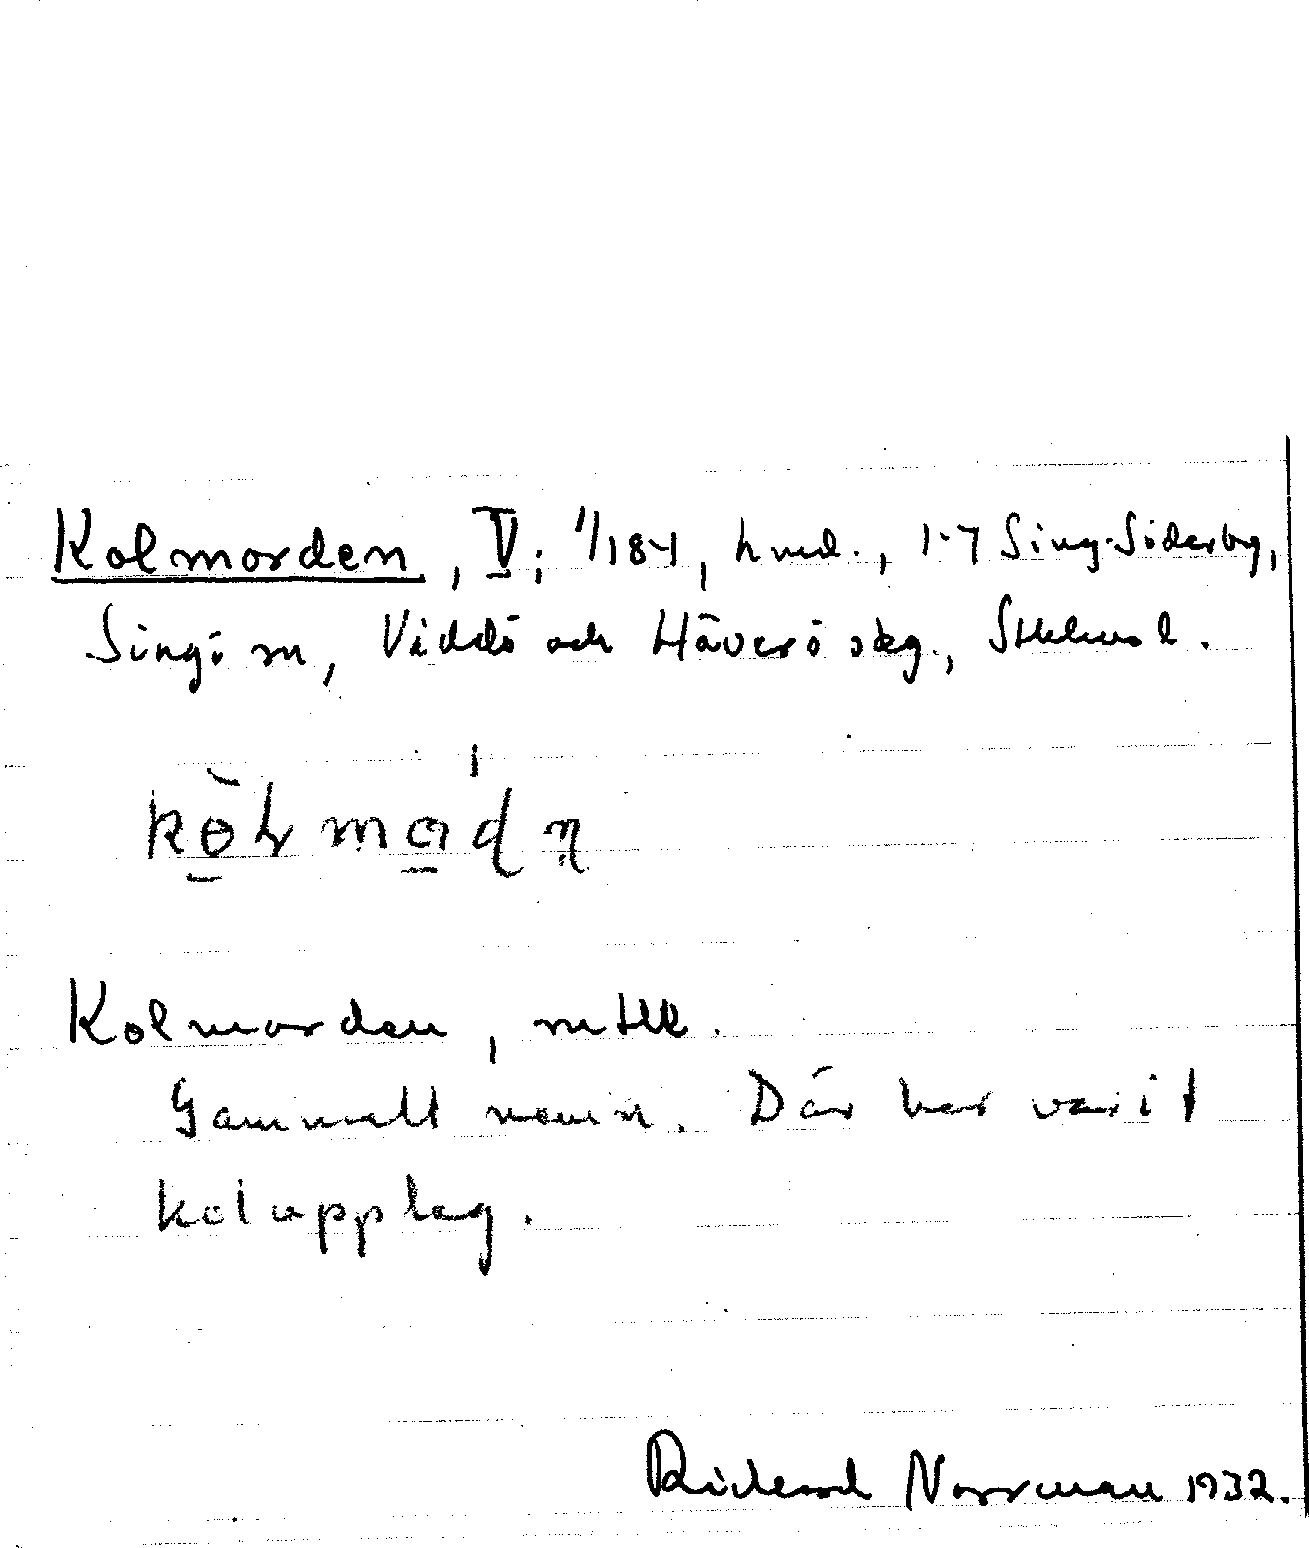 Kolmorden, V; 1/184, hmd., 1-7 Sing-Söderby,
Singö sn, Väddö och Häverö skg., Sthlms l.
Kolmorden, mtlk.
Gammalt namn. Där har varit
kolupplag.
Rickard Norrman 1932.